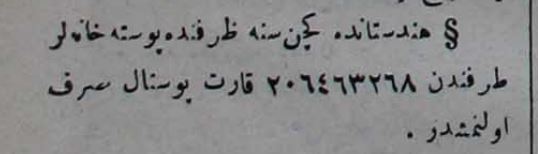 § هندستانده كچن سنه ظرفنده پوسته خانه‌لر
طرفندن ٢٠٦٤٦٣٢٦٨ قارت پوستال صرف
اولنمشدر .